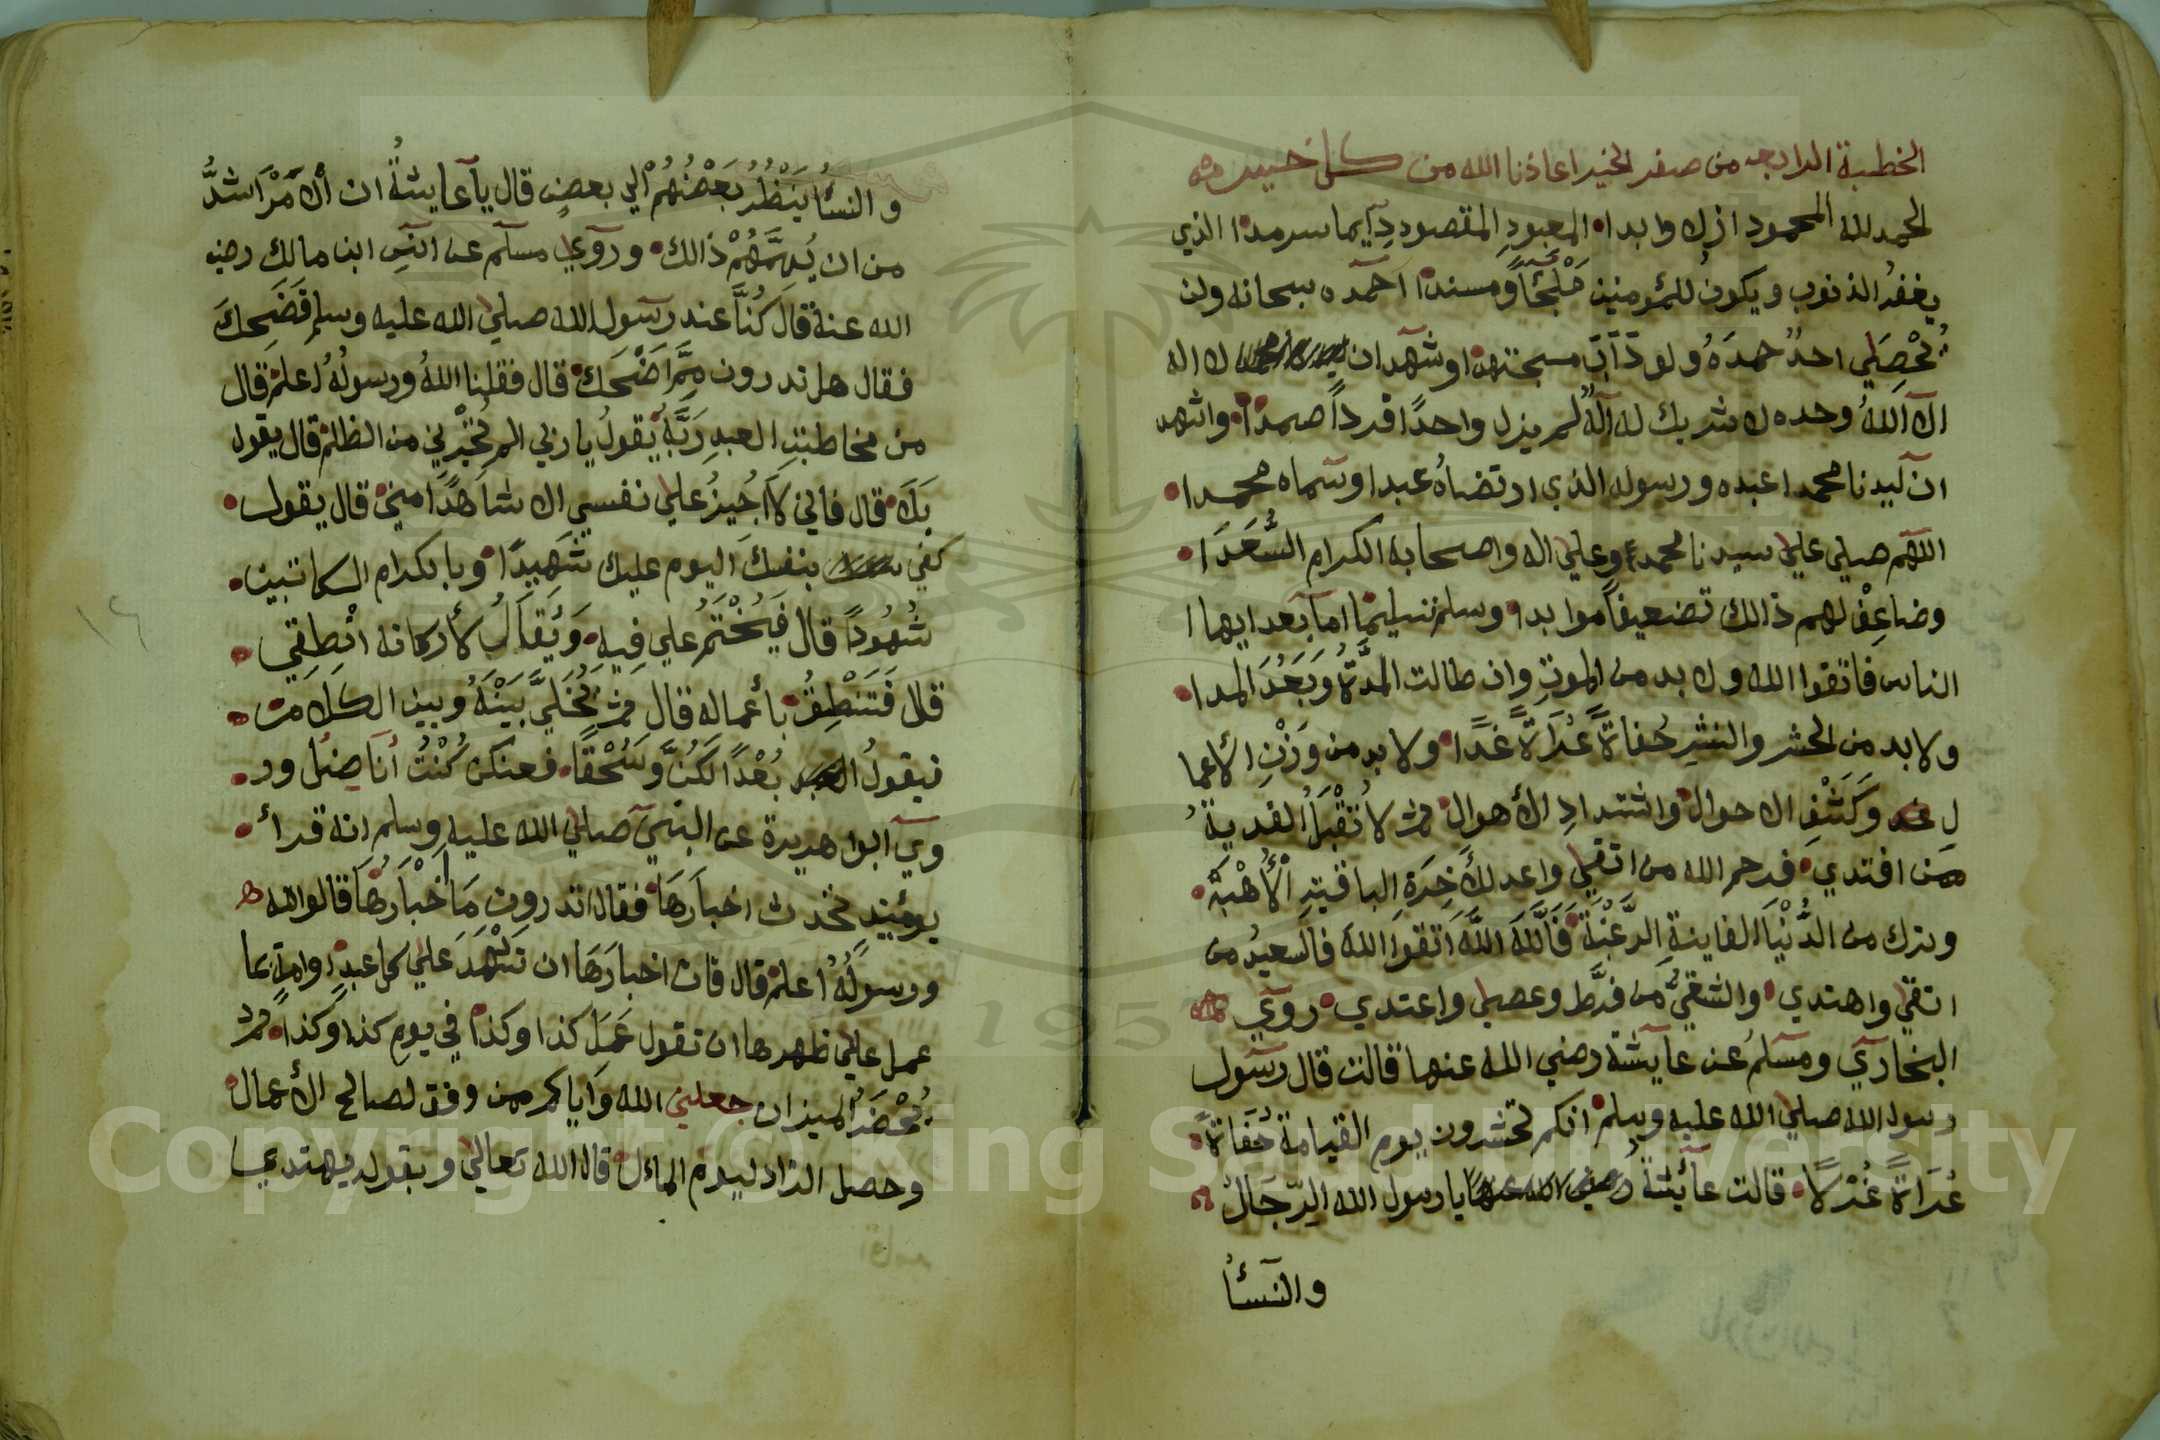 الخطبة الرابعه من صفر الخير اعاذنا الله من كل ضير
الحمد لله المحمود ازلا وابدا المعبودِ المقصود دآيما سرمدا الذي
يغفر الذنوب ويكون للمؤمنين مَلْجَئًا ومسندا احمده سبحانه ولن
يُحْصِي احدٌ حمدَهُ ولو دَأَبَ مسبحتهدا واشهد ان لا اله
الا اللهُ وحده لا شريك له اِلَهٌ لم يزل واحدًا فرداً صمدًا واشهد
ان سيدنا محمدا عبده ورسوله الذي ارتضاهُ عبدا وسماه محمدا
اللهم صلي علي سيدنا محمد وعلي اله واصحابه الكرام السُّعَدَا
وضاعِفْ لهم ذالك تضعيفاً موابدا وسلم تسليما اما بعد ايها ا
الناس فاتقوا الله ولا بد من الموتِ وان طالت المدَّةُ وَبَعُدَ المدا
ولا بد من الحشر والنشرِ حُفاةً عُرَاةً غدًا ولا بد من وَزْنِ الأعما
لِ وَكَشْفِ الاحوال واشتدادِ الأهوالِ ثم لا تُقْبَلُ الفديةُ
ممن افتدي فرحم الله من اتقي واعد للأَخِرَةِ الباقيةِ الأُهْبَةَ
وترك من الدُّنْيَا الفانيةِ الرَّغْبَةَ فَاَللَّهَ اللَّهَ اتقوا اللهَ فالسعيدُ من
اتقي واهتدي والشقيُّ من فرَّط وعصي واعتدي روي
البخاري ومسلم عن عايشة رضي الله عنها قالت قال رسول
رسول الله صلي الله عليه وسلم انكم تحشرون يوم القيامة حُفَاةً
عُرَاةً غُرْلًا قالت عائشة رضي الله عنها يا رسول الله الرِّجَالُ
والنسأ
والنسأُ يَنْظُرُ بَعْضُهُمْ الي بعضٍ قال يا عايشةُ ان الأَمْرَ اشدُّ
من ان يُهِمَّهُمْ ذالك وروي مسلم عن انسِ ابن مالك رضي
الله عنه قال كُنَّا عند رسول الله صلي الله عليه وسلم فَضَحِكَ
فقال هل تدرون مِمَّ اضْحَك قال فقلنا اللهُ ورسولُهُ اعلم قال
من مخاطبتِ العبدِ رَبَّهُ يقولُ يا ربي الم تُجْرِني من الظلم قال يقول
بَلَا قال فاني لا اُجِيزُ علي نفسي الا شاهدًا مني قال يقول
كفي بنفسك اليوم عليك شَهِيدًا وبالكرام الكاتبين
شُهُودًا قال فَيُخْتَمُ علي فِيهِ وَيُقَالُ لأركانه انْطِقِي
قال فَتَنْطِقُ بأعماله قال ثم يُخَلَّي بَيْنَهُ وبين الكلام
فيقولُ بُعْدًا لَكُنَّ وَسُحْقًا فعنكن كُنْتُ أناضِلُ ور
وي ابوا هريرة عن النبي صلي الله عليه وسلم انه قرأ
يومئيذٍ تحدث اخبارَهَا فقال اتدرون مَا اخْبَارُهَا قالوا الله
ورسولُهُ اعلم قال فان اخبارَهَا ان تَشْهَدَ علي كل عبدٍ وامةٍ بما
عمل علي ظهرها ان تقول عَمِلَ كذا وكذا في يومِ كذا وكذا ثم
يُحْضَرُ الميزان جعلني الله واياكم ممن وفق لصالح الأعمال
وحصل الزاد ليوم المأل قال الله تعالي وبقوله يهتدي